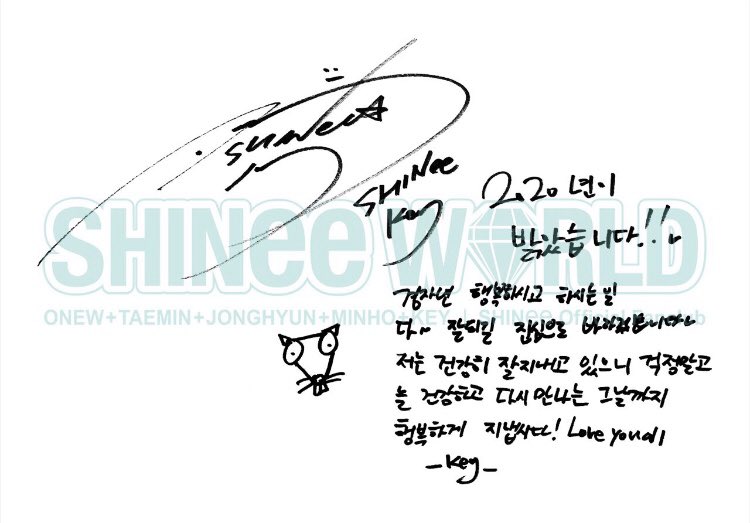 SHINee
SHINee
Key
2020년이
밝았습니다!!
SHINee WORLD
경자년 행복하시고 하시는 일
다~ 잘되길 진심으로 바라겠습니다~
ONEW+TAEMIN+JONGHYUN+MINHO+KEY | SHINee Official Fanclub
저는 건강히 잘지내고 있으니 걱정말고
늘 건강하고 다시 만나는 그날까지
행복하게 지냅시다! Love you all
-Key-